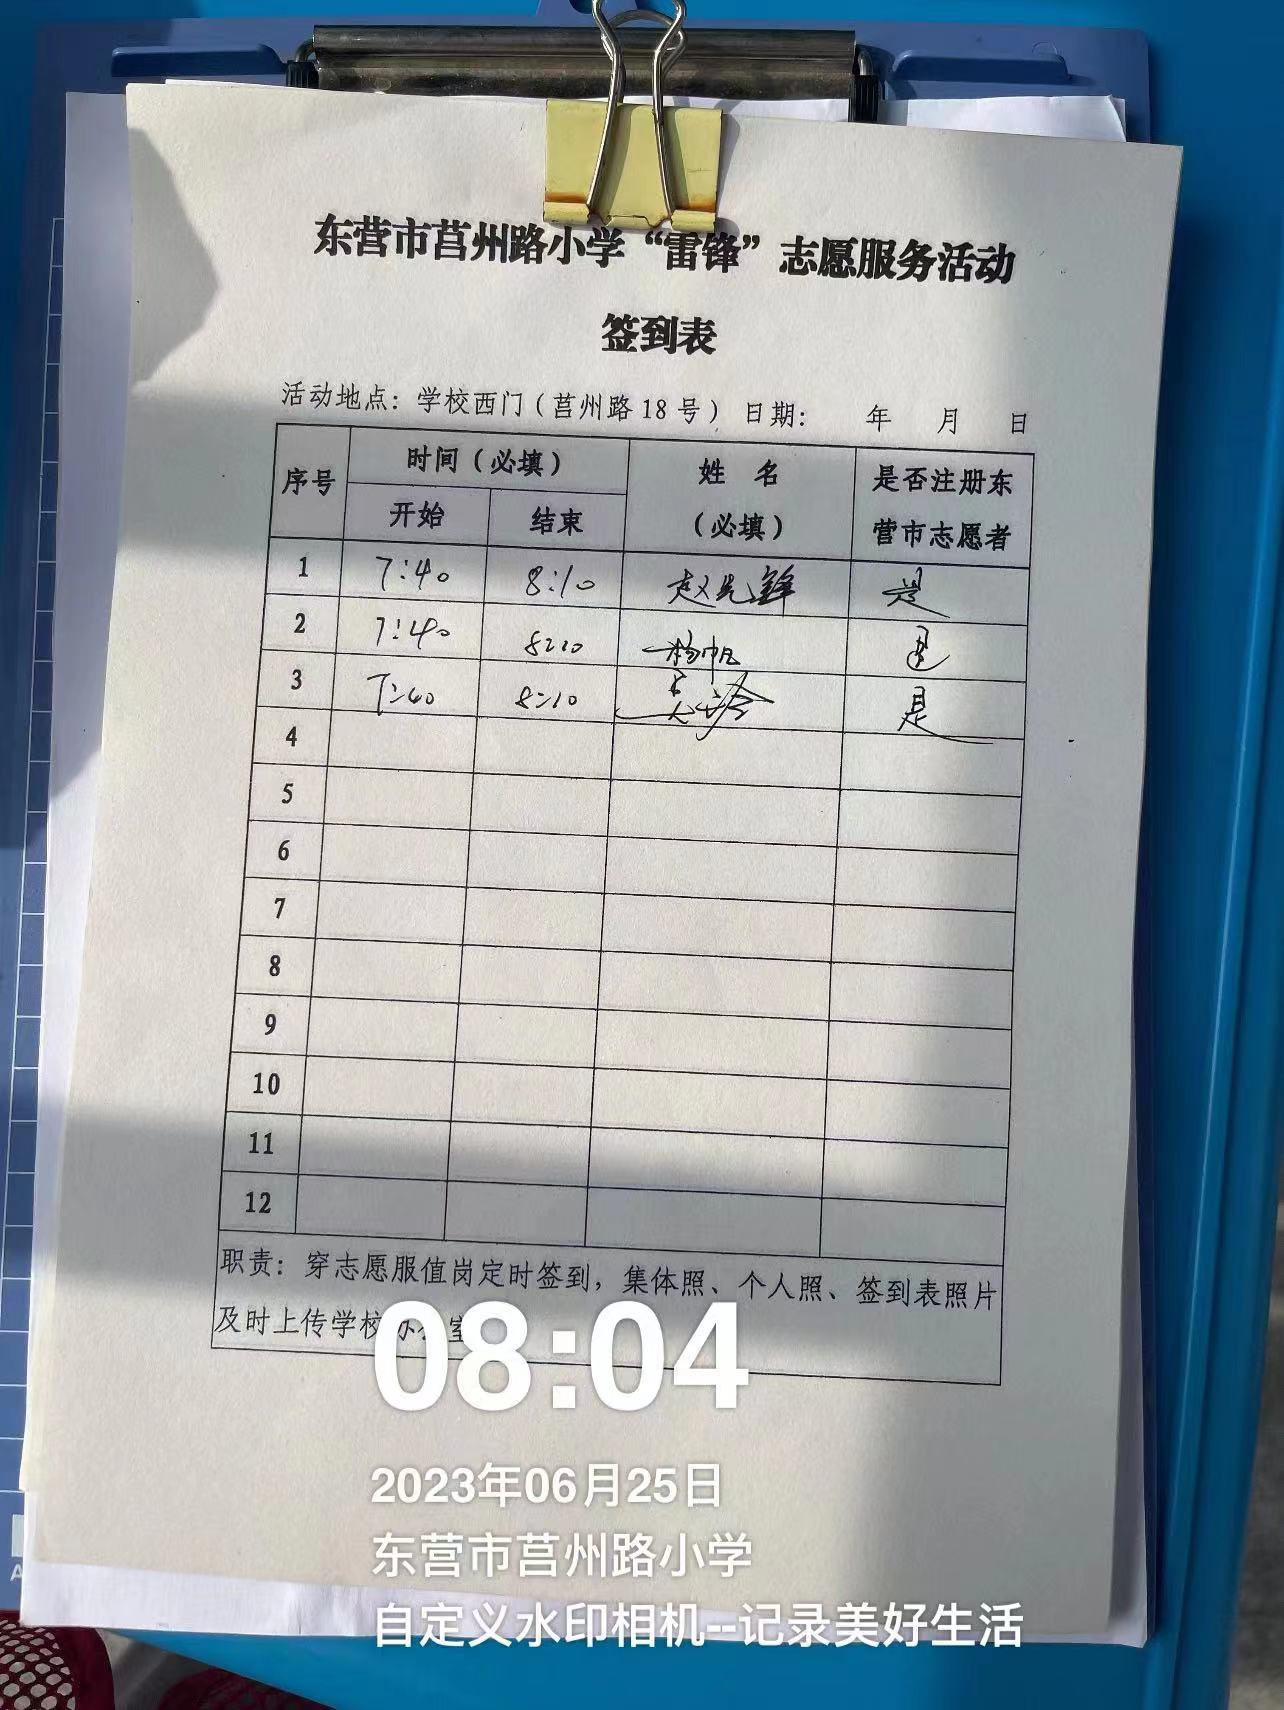 东营市莒州路小学“雷锋”志愿服务活动
签到表
活动地点：学校西门（莒州路18号） 日期： 年 月 日
序号 时间（必填） 姓 名（必填） 是否注册东营市志愿者
开始 结束
1 7:40 8:10 赵先锋 是
2 7:40 8:10 杨帆 是
3 7:40 8:10 是
4
5
6
7
8
9
10
11
12
职责：穿志愿服值岗定时签到，集体照、个人照、签到表照片
及时上传学校办公室
08:04
2023年06月25日
东营市莒州路小学
自定义水印相机--记录美好生活